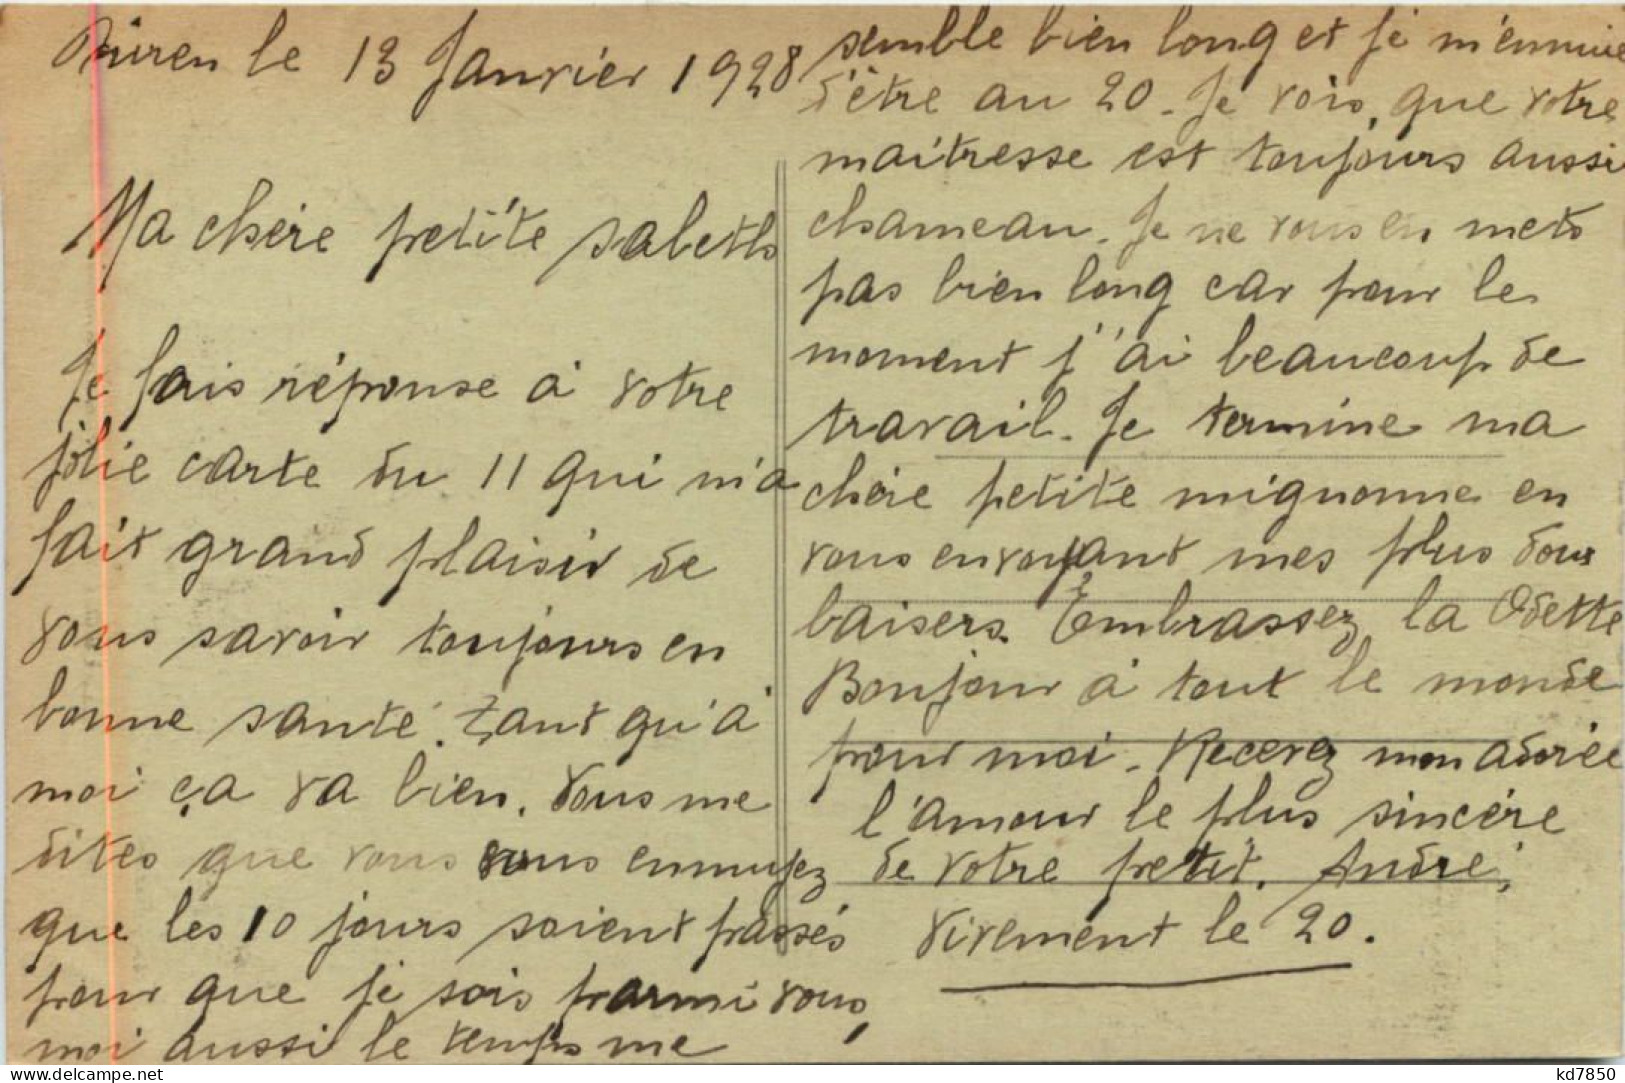 Düren le 13 Janvier 1928
Ma chère petite sabeth
Je fais réponse à votre
jolie carte du 11 qui m'a
fait grand plaisir de
vous savoir toujours en
bonne santé. Tant qu'à
moi ça va bien. Vous me
dites que vous vous ennuyez
que les 10 jours soient passés
pour que je sois parmi vous,
moi aussi le temps me
semble bien long et je m'ennuie
d'être au 20. Je vois, que votre
maitresse est toujours aussi
chameau. Je ne vous en mets
pas bien long car pour le
moment j'ai beaucoup de
travail. Je termine ma
chère petite mignonne en
vous envoyant mes plus doux
baisers. Embrassez la Odette
Bonjour à tout le monde
pour moi. Recevez mon adorée
l'amour le plus sincère
de votre petit. André,
Vivement le 20.
www.delcampe.net
kd7850